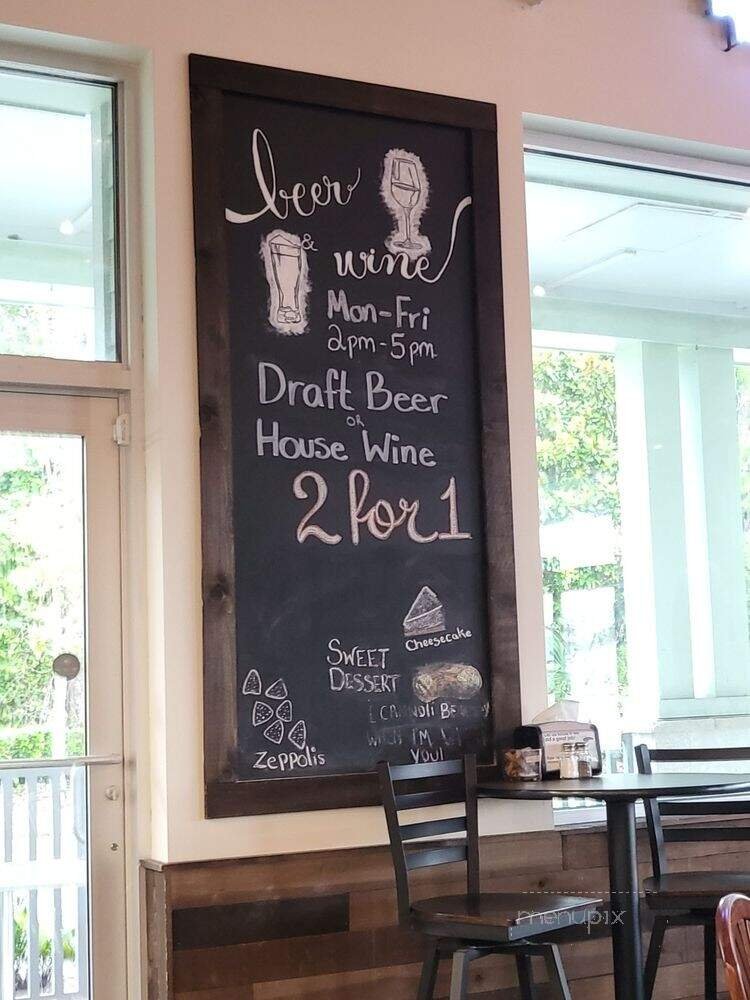 beer
&
wine
Mon-Fri
2pm-5pm
Draft Beer
OR
House Wine
2 for 1
Cheesecake
SWEET
DESSERT
I CANNOLI BE
WITH I'M
YOU!
Zeppolis
menupix